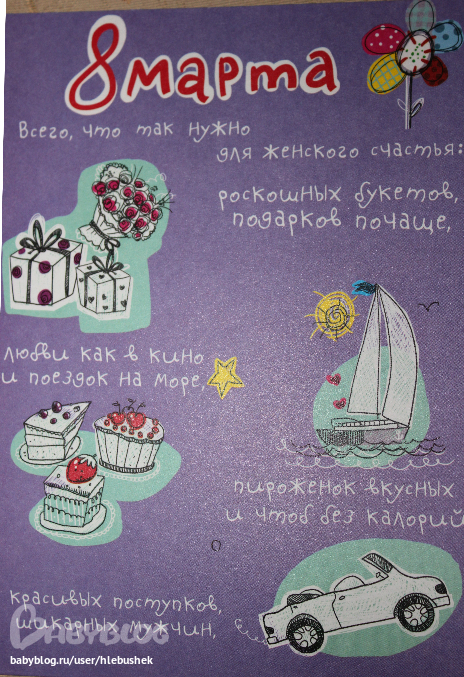 8 марта
Всего, что так нужно
для женского счастья:
роскошных букетов,
подарков почаще,
любви как в кино
и поездок на море
пироженок вкусных
и чтоб без калорий
красивых поступков,
шикарных мужчин,
BABYBLOG
babyblog.ru/user/hlebushek